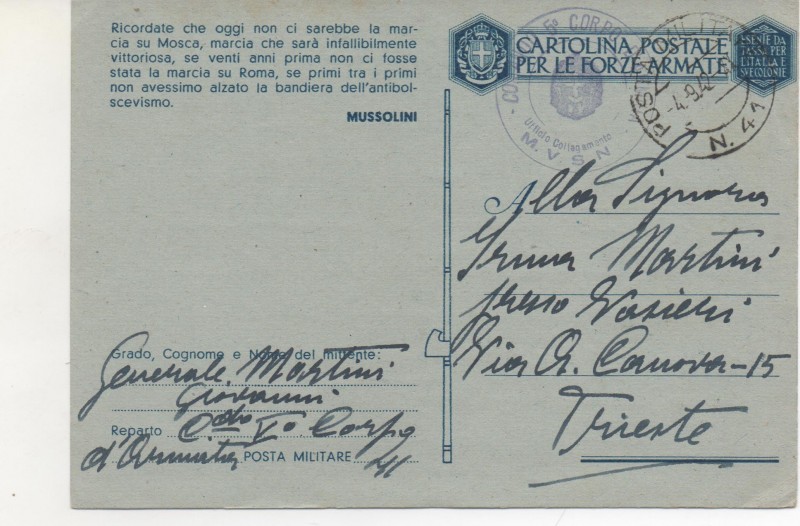 Ricordate che oggi non ci sarebbe la mar-
cia su Mosca, marcia che sarà infallibilmente
vittoriosa, se venti anni prima non ci fosse
stata la marcia su Roma, se primi tra i primi
non avessimo alzato la bandiera dell'antibol-
scevismo.
MUSSOLINI
CARTOLINA POSTALE
PER LE FORZE ARMATE
ESENTE DA
TASSA PER
L'ITALIA E
SUE COLONIE
5° CORPO
Ufficio Collegamento
M. V. S. N.
POSTA MILIT
-4.9.42
N. 41
Alla Signora
Martini
presso
Via A. Canova-15
Trieste
Grado, Cognome e Nome del mittente:
Generale Martini
Giovanni
Reparto Cdo V° Corpo
d'Armata POSTA MILITARE 41